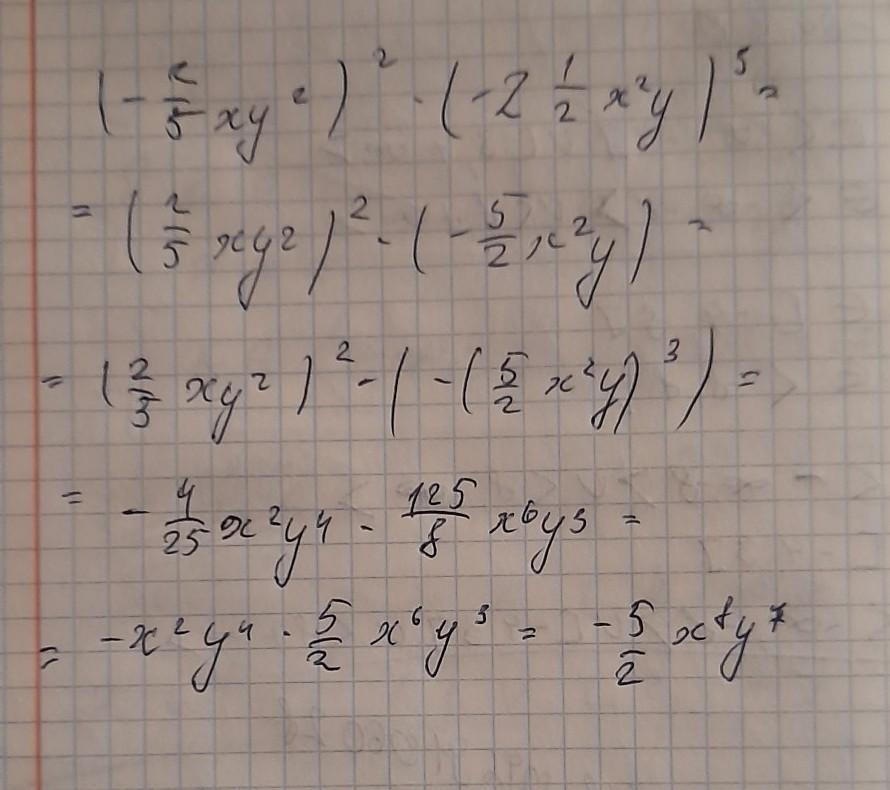 (-2/5 xy²)² · (-2 1/2 x²y)³ =
= (2/5 xy²)² · (-5/2 x²y) =
= (2/3 xy²)² · (-(5/2 x²y)³) =
= -4/25 x²y⁴ · 125/8 x⁶y³ =
= -x²y⁴ · 5/2 x⁶y³ = -5/2 x⁸y⁷